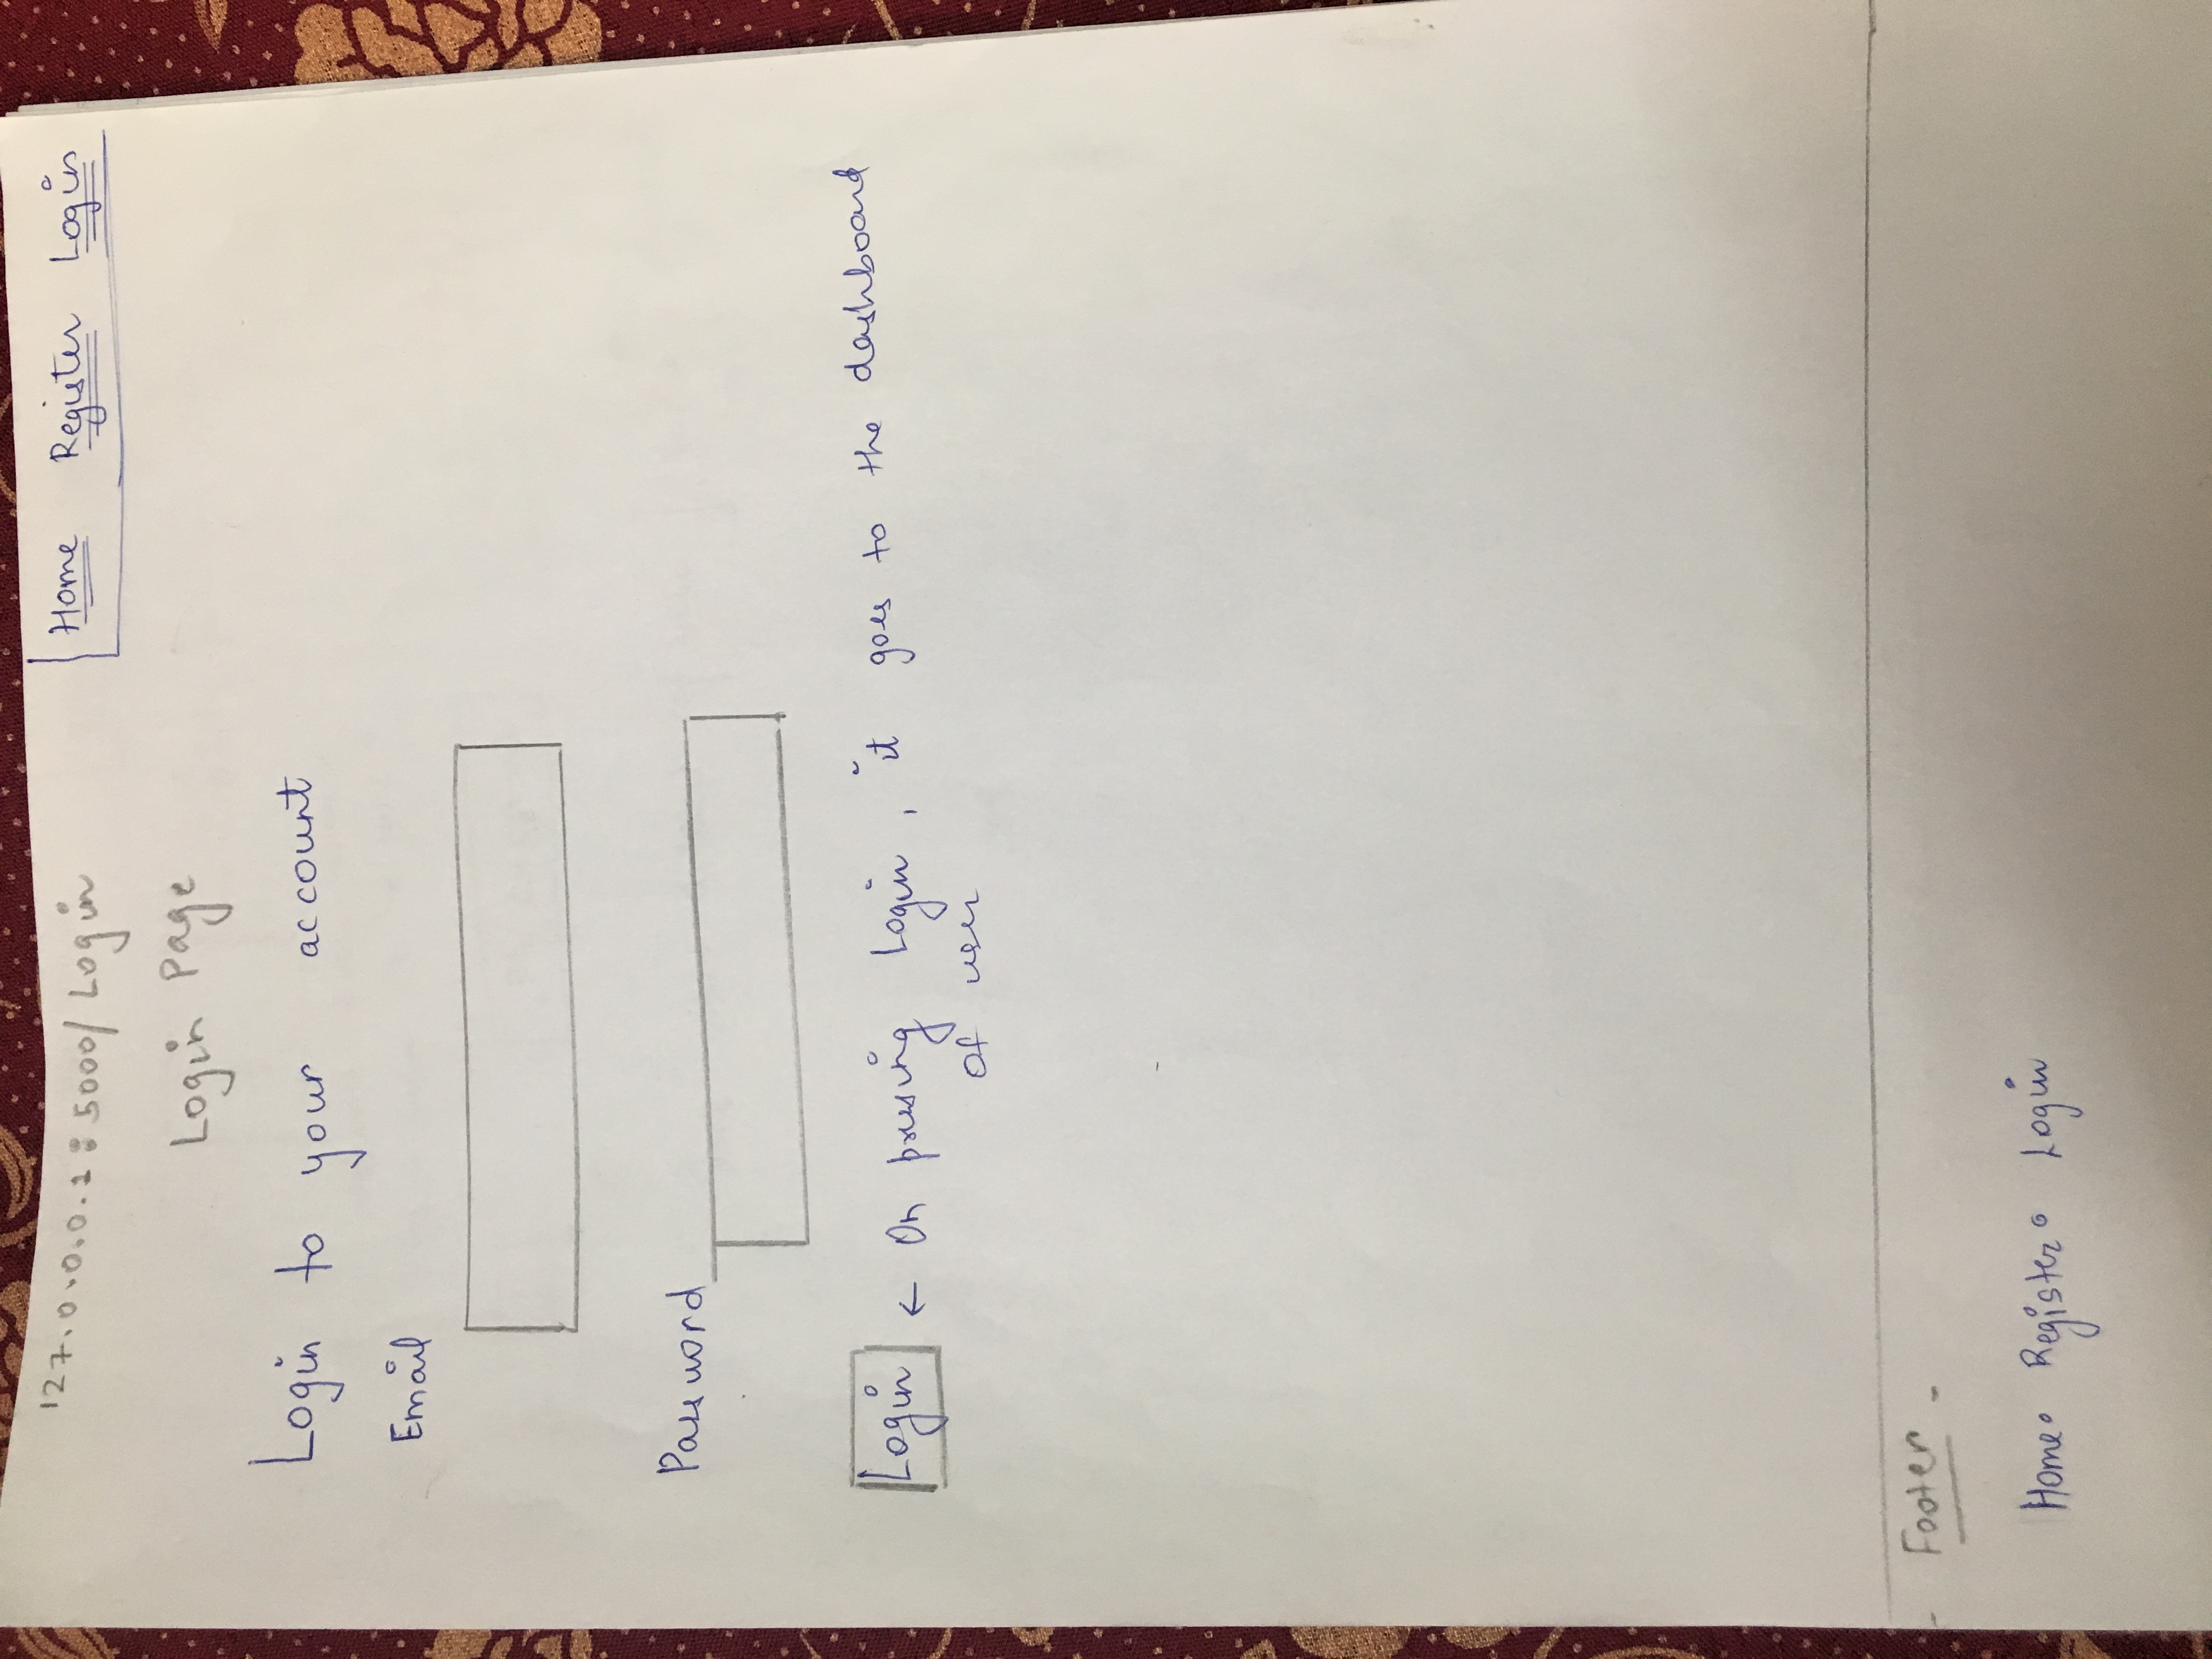 127.0.0.0.1:5000/Login
Home Register Login
Login Page
Login to your account
Email
Password
Login ← On pressing Login, it goes to the dashboard
of user
- Footer -
Home• Register• Login